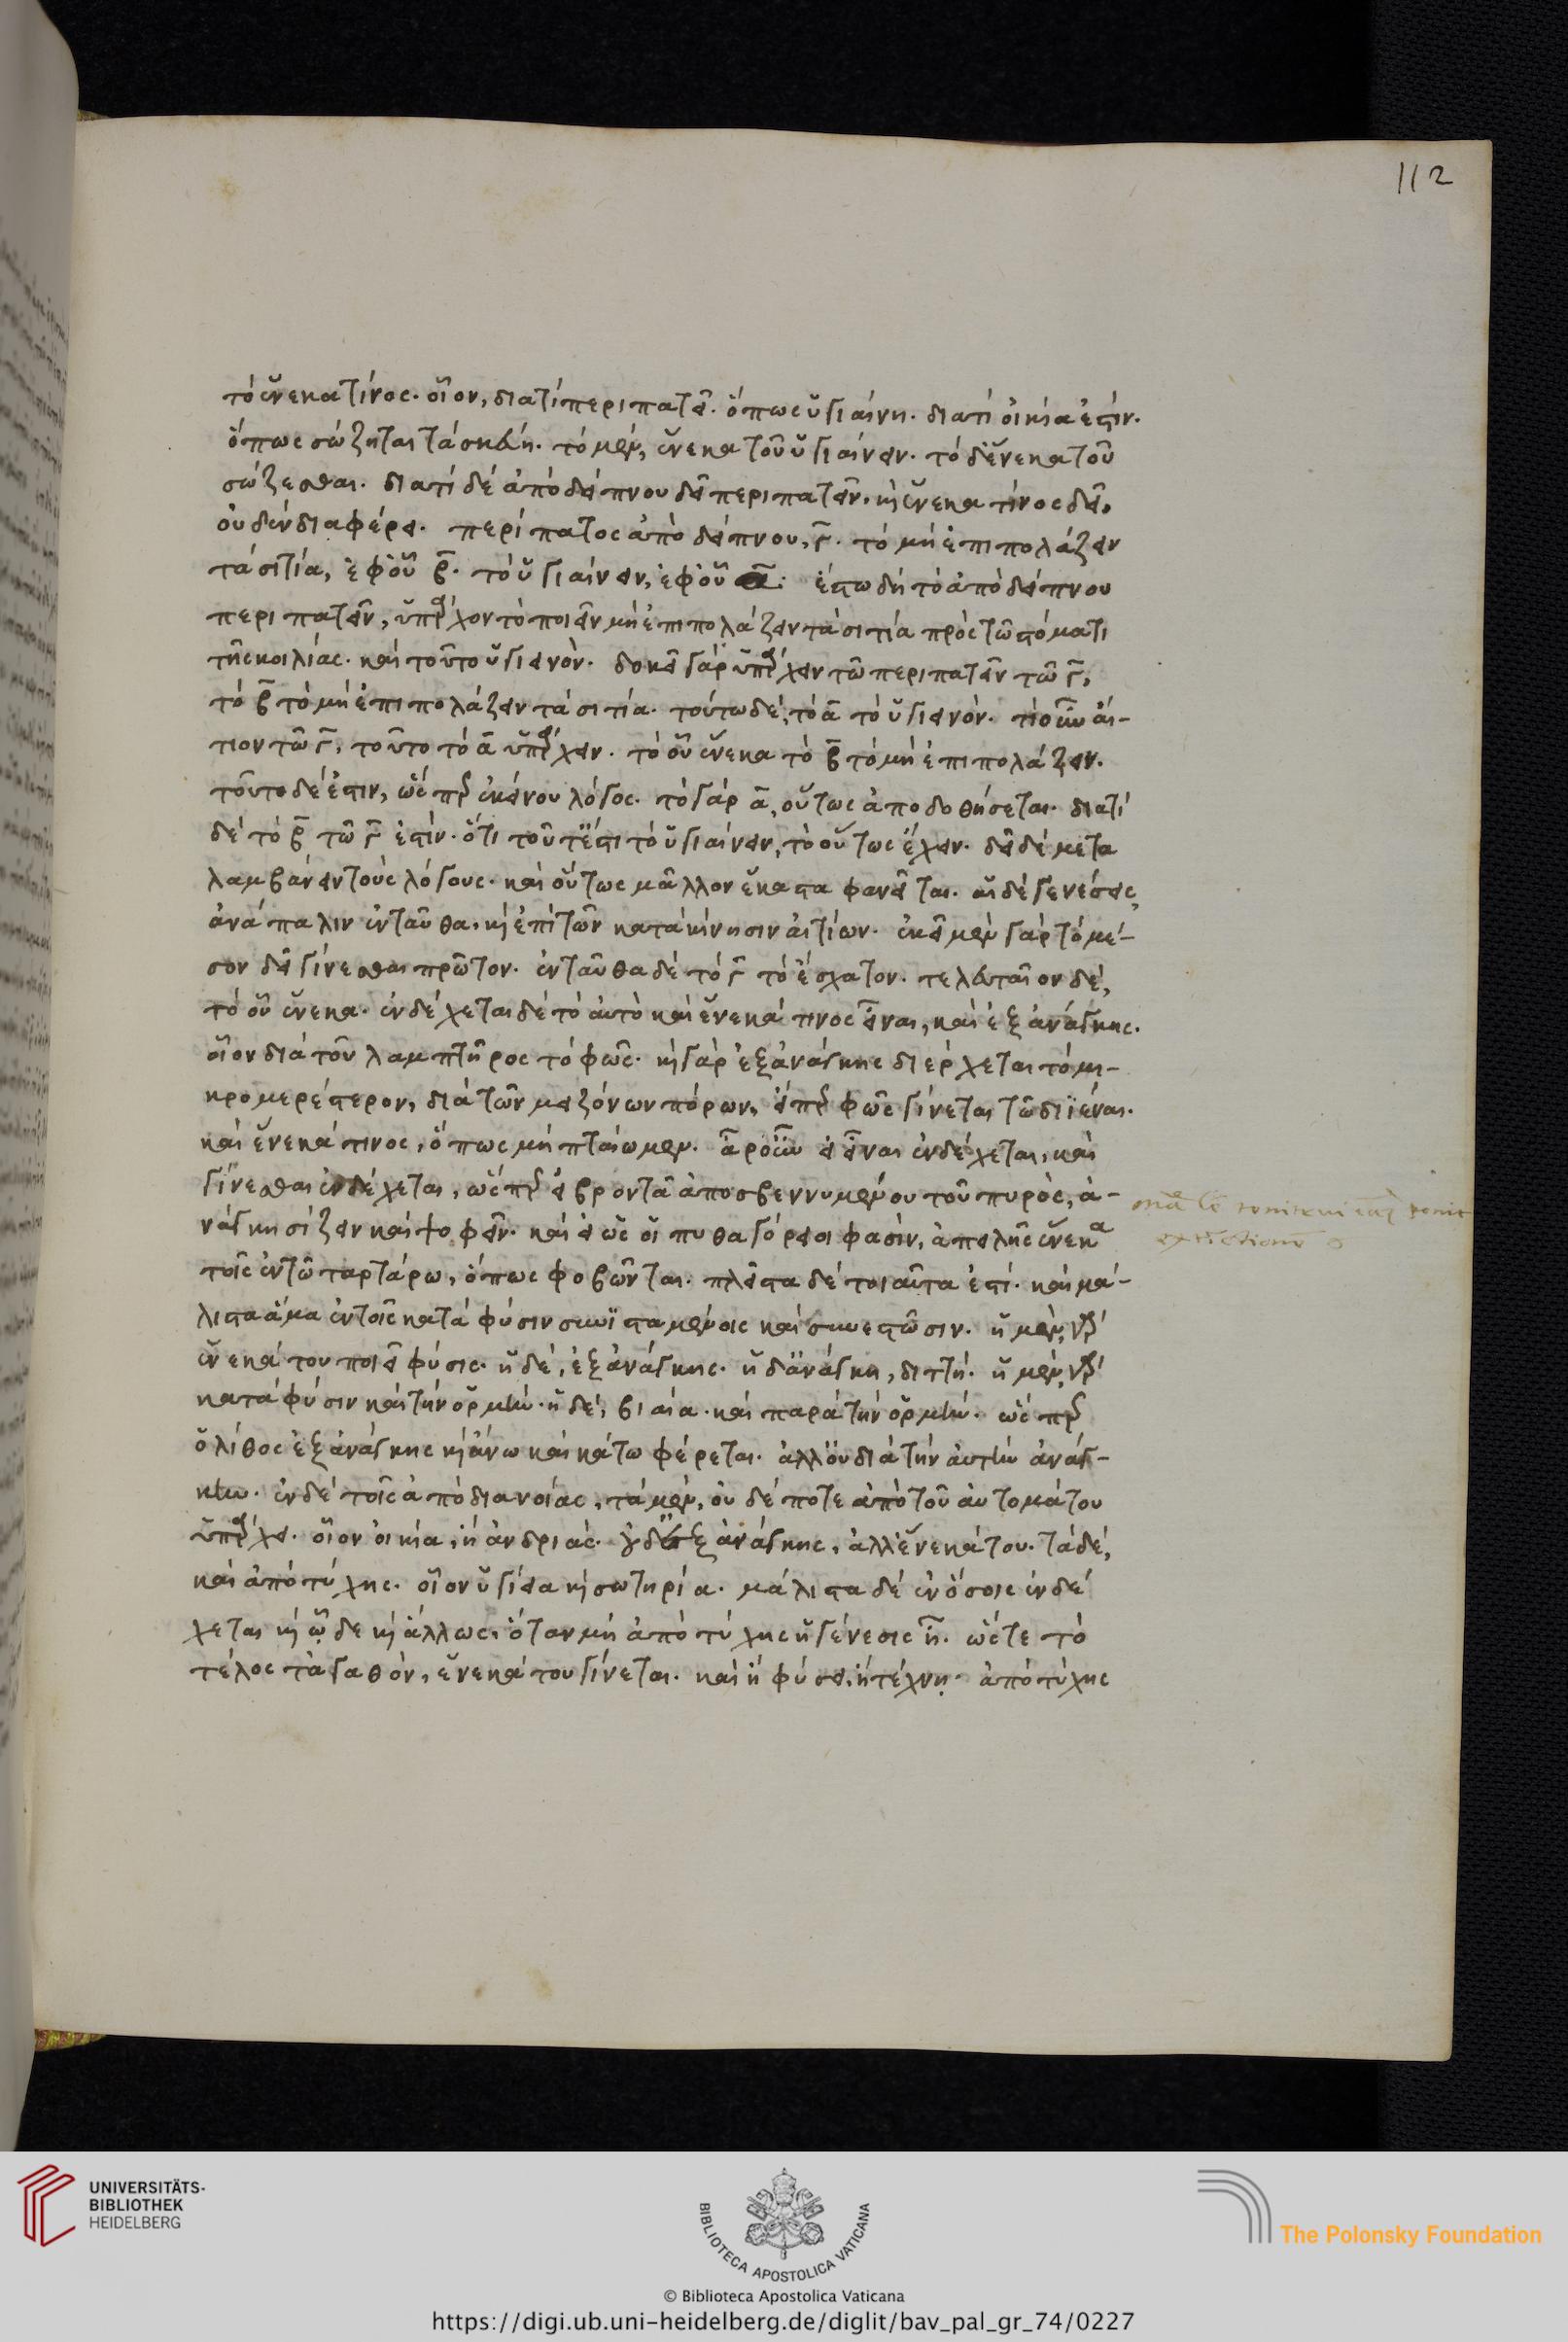 112
τό ἕνεκα τίνος. οἷον, διατί περιπατεῖ. ὅπως ὑγιαίνη. διατί οἰκία ἐστίν.
ὅπως σώζηται τά σκεύη. τό μέν, ἕνεκα τοῦ ὑγιαίνειν. τό δ' ἕνεκα τοῦ
σώζεσθαι. διατί δέ ἀπό δείπνου δεῖ περιπατεῖν. κὶ ἕνεκα τίνος δεῖ,
οὐδέν διαφέρει. περίπατος ἀπό δείπνου, γ̄. τό μή ἐπιπολάζειν
τά σιτία, ἐφ' οὗ β̄. τό ὑγιαίνειν, ἐφ' οὗ ᾱ. ἔστω δή τό ἀπό δείπνου
περιπατεῖν, ὑπάρχον τό ποιεῖν μή ἐπιπολάζειν τά σιτία πρός τῶ στόματι
τῆς κοιλίας. καί τοῦτο ὑγιεινόν. δοκεῖ γάρ ὑπάρχειν τῶ περιπατεῖν τῶ γ̄,
τό β̄ τό μή ἐπιπολάζειν τά σιτία. τούτω δέ, τό ᾱ τό ὑγιεινόν. τί οὖν αἴ-
τιον τῶ γ̄, τοῦτο τό ᾱ ὑπάρχειν. τό οὗ ἕνεκα τό β̄ τό μή ἐπιπολάζειν.
τοῦτο δέ ἐστιν, ὥσπερ ἐκείνου λόγος. τό γάρ ᾱ, οὕτως ἀποδοθήσεται. διατί
δέ τό β̄ τῶ γ̄ ἐστίν. ὅτι τοῦτ' ἔστι τό ὑγιαίνειν, τό οὕτως ἔχειν. δεῖ δέ μετα
λαμβάνειν τούς λόγους. καί οὕτως μᾶλλον ἕκαστα φανεῖται. αἱ δέ γενέσεις,
ἀνάπαλιν ἐνταῦθα, κὶ ἐπί τῶν κατά κίνησιν αἰτίων. ἐκεῖ μέν γάρ τό μέ-
σον δεῖ γίνεσθαι πρῶτον. ἐνταῦθα δέ τό γ̄ τό ἔσχατον. τελευταῖον δέ,
τό οὗ ἕνεκα. ἐνδέχεται δέ τό αὐτό καί ἕνεκά τινος εἶναι, καί ἐξ ἀνάγκης.
οἷον διά τοῦ λαμπτῆρος τό φῶς. κὶ γάρ ἐξ ἀνάγκης διέρχεται τό μι-
κρομερέστερον, διά τῶν μειζόνων πόρων, εἴπερ φῶς γίνεται τῶ διϊέναι.
καί ἕνεκά τινος, ὅπως μή πταίωμεν. ἆρ' οὖν εἰ εἶναι ἐνδέχεται, καί
γίνεσθαι ἐνδέχεται, ὥσπερ εἰ βροντᾶ ἀποσβεννυμένου τοῦ πυρός, ἀ-
νάγκη σίζειν καί ψοφεῖν. καί εἰ ὡς οἱ πυθαγόρειοι φασίν, ἀπειλῆς ἕνεκα
τοῖς ἐν τῶ ταρτάρω, ὅπως φοβῶνται. πλεῖστα δέ τοιαῦτα ἐστί. καί μά-
λιστα ἅμα ἐν τοῖς κατά φύσιν συνϊσταμένοις καί συνεστῶσιν. ἡ μέν γάρ
ἕνεκά του ποιεῖ φύσις. ἡ δέ, ἐξ ἀνάγκης. ἡ δ' ἀνάγκη, διττή. ἡ μέν γάρ
κατά φύσιν καί τήν ὁρμήν. ἡ δέ, βιαία. καί παρά τήν ὁρμήν. ὥσπερ
ὁ λίθος ἐξ ἀνάγκης κὶ ἄνω καί κάτω φέρεται. ἀλλ' οὐ διά τήν αὐτήν ἀνάγ-
κην. ἐν δέ τοῖς ἀπό διανοίας, τά μέν, οὐδέποτε ἀπό τοῦ αὐτομάτου
ὑπάρχει. οἷον οἰκία, ἤ ἀνδριάς. οὐδ' ἐξ ἀνάγκης, ἀλλ' ἕνεκά του. τά δέ,
καί ἀπό τύχης. οἷον ὑγίεια κὶ σωτηρία. μάλιστα δέ ἐν ὅσοις ἐνδέ
χεται κὶ ὧδε κὶ ἄλλως, ὅταν μή ἀπό τύχης ἡ γένεσις ᾖ. ὥστε τό
τέλος τἀγαθόν, ἕνεκά του γίνεται. καί ἤ φύσει, ἤ τέχνῃ. ἀπό τύχης
UNIVERSITÄTS-
BIBLIOTHEK
HEIDELBERG
BIBLIOTECA APOSTOLICA VATICANA
The Polonsky Foundation
© Biblioteca Apostolica Vaticana
https://digi.ub.uni-heidelberg.de/diglit/bav_pal_gr_74/0227